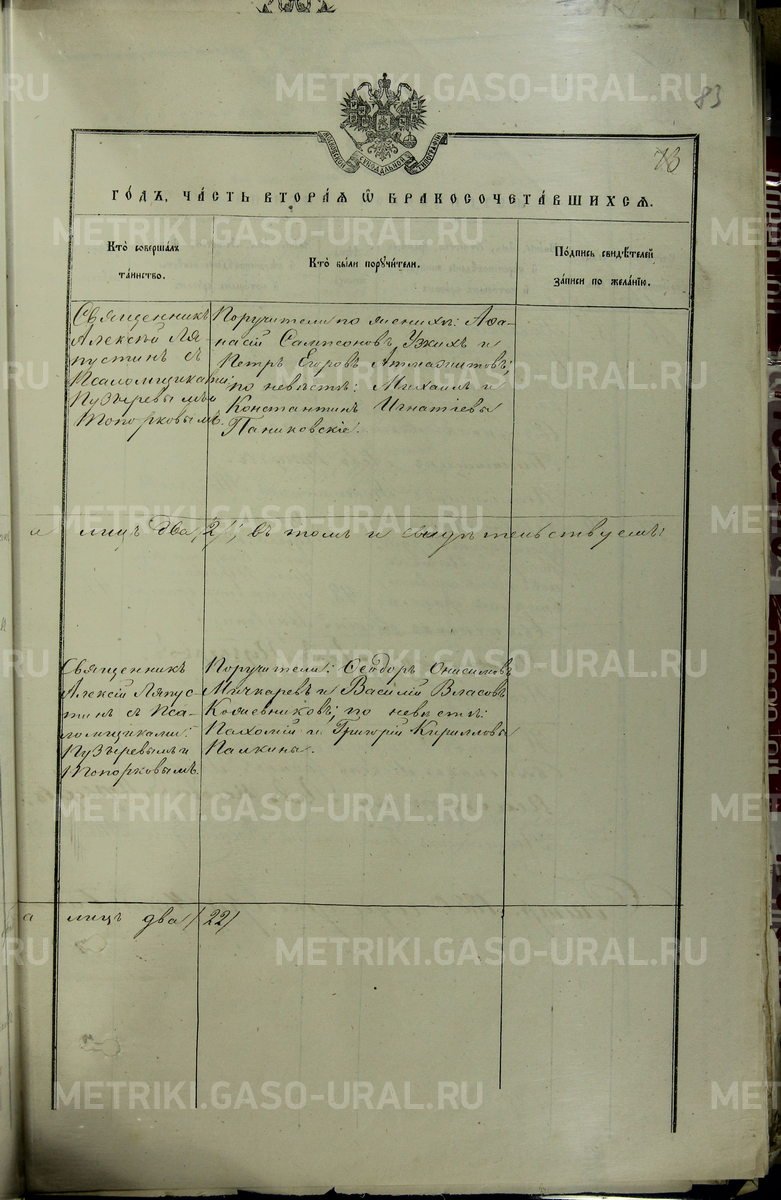 83
73
МОСКОВСКОЙ СѴНОДАЛЬНОЙ ТИПОГРАФІИ
ГО́ДЪ, ЧА́СТЬ ВТОРА́Я Ѡ҆ БРАКОСОЧЕТА́ВШИХСЯ.
Кто̀ соверша́лъ
та́инство.
Кто̀ бы́ли порꙋчи́тели.
По́дпись свидѣ́телей
за́писи по жела́нїю.
Священникъ
Алексѣй Ля-
пустинъ съ
Псаломщиками
Пузыревымъ и
Топорковымъ.
Поручители по женихѣ: Аѳа-
насій Сампсоновъ Узкихъ и
Петръ Егоровъ
по невѣстѣ: Михаилъ и
Константинъ Игнатіевы
Паниковскіе.
лицъ два /2/, въ томъ и свидѣтельствуемъ:
Священникъ
Алексій Ляпус-
тинъ съ Пса-
ломщиками:
Пузыревымъ и
Топорковымъ.
Поручители: Ѳеодоръ Онисимовъ
Мичкаревъ и Василій Власовъ
Кожевниковъ; по невѣстѣ:
Пахомій и Григорій Кирилловы
Палкины.
а лицъ два /22/
METRIKI.GASO-URAL.RU